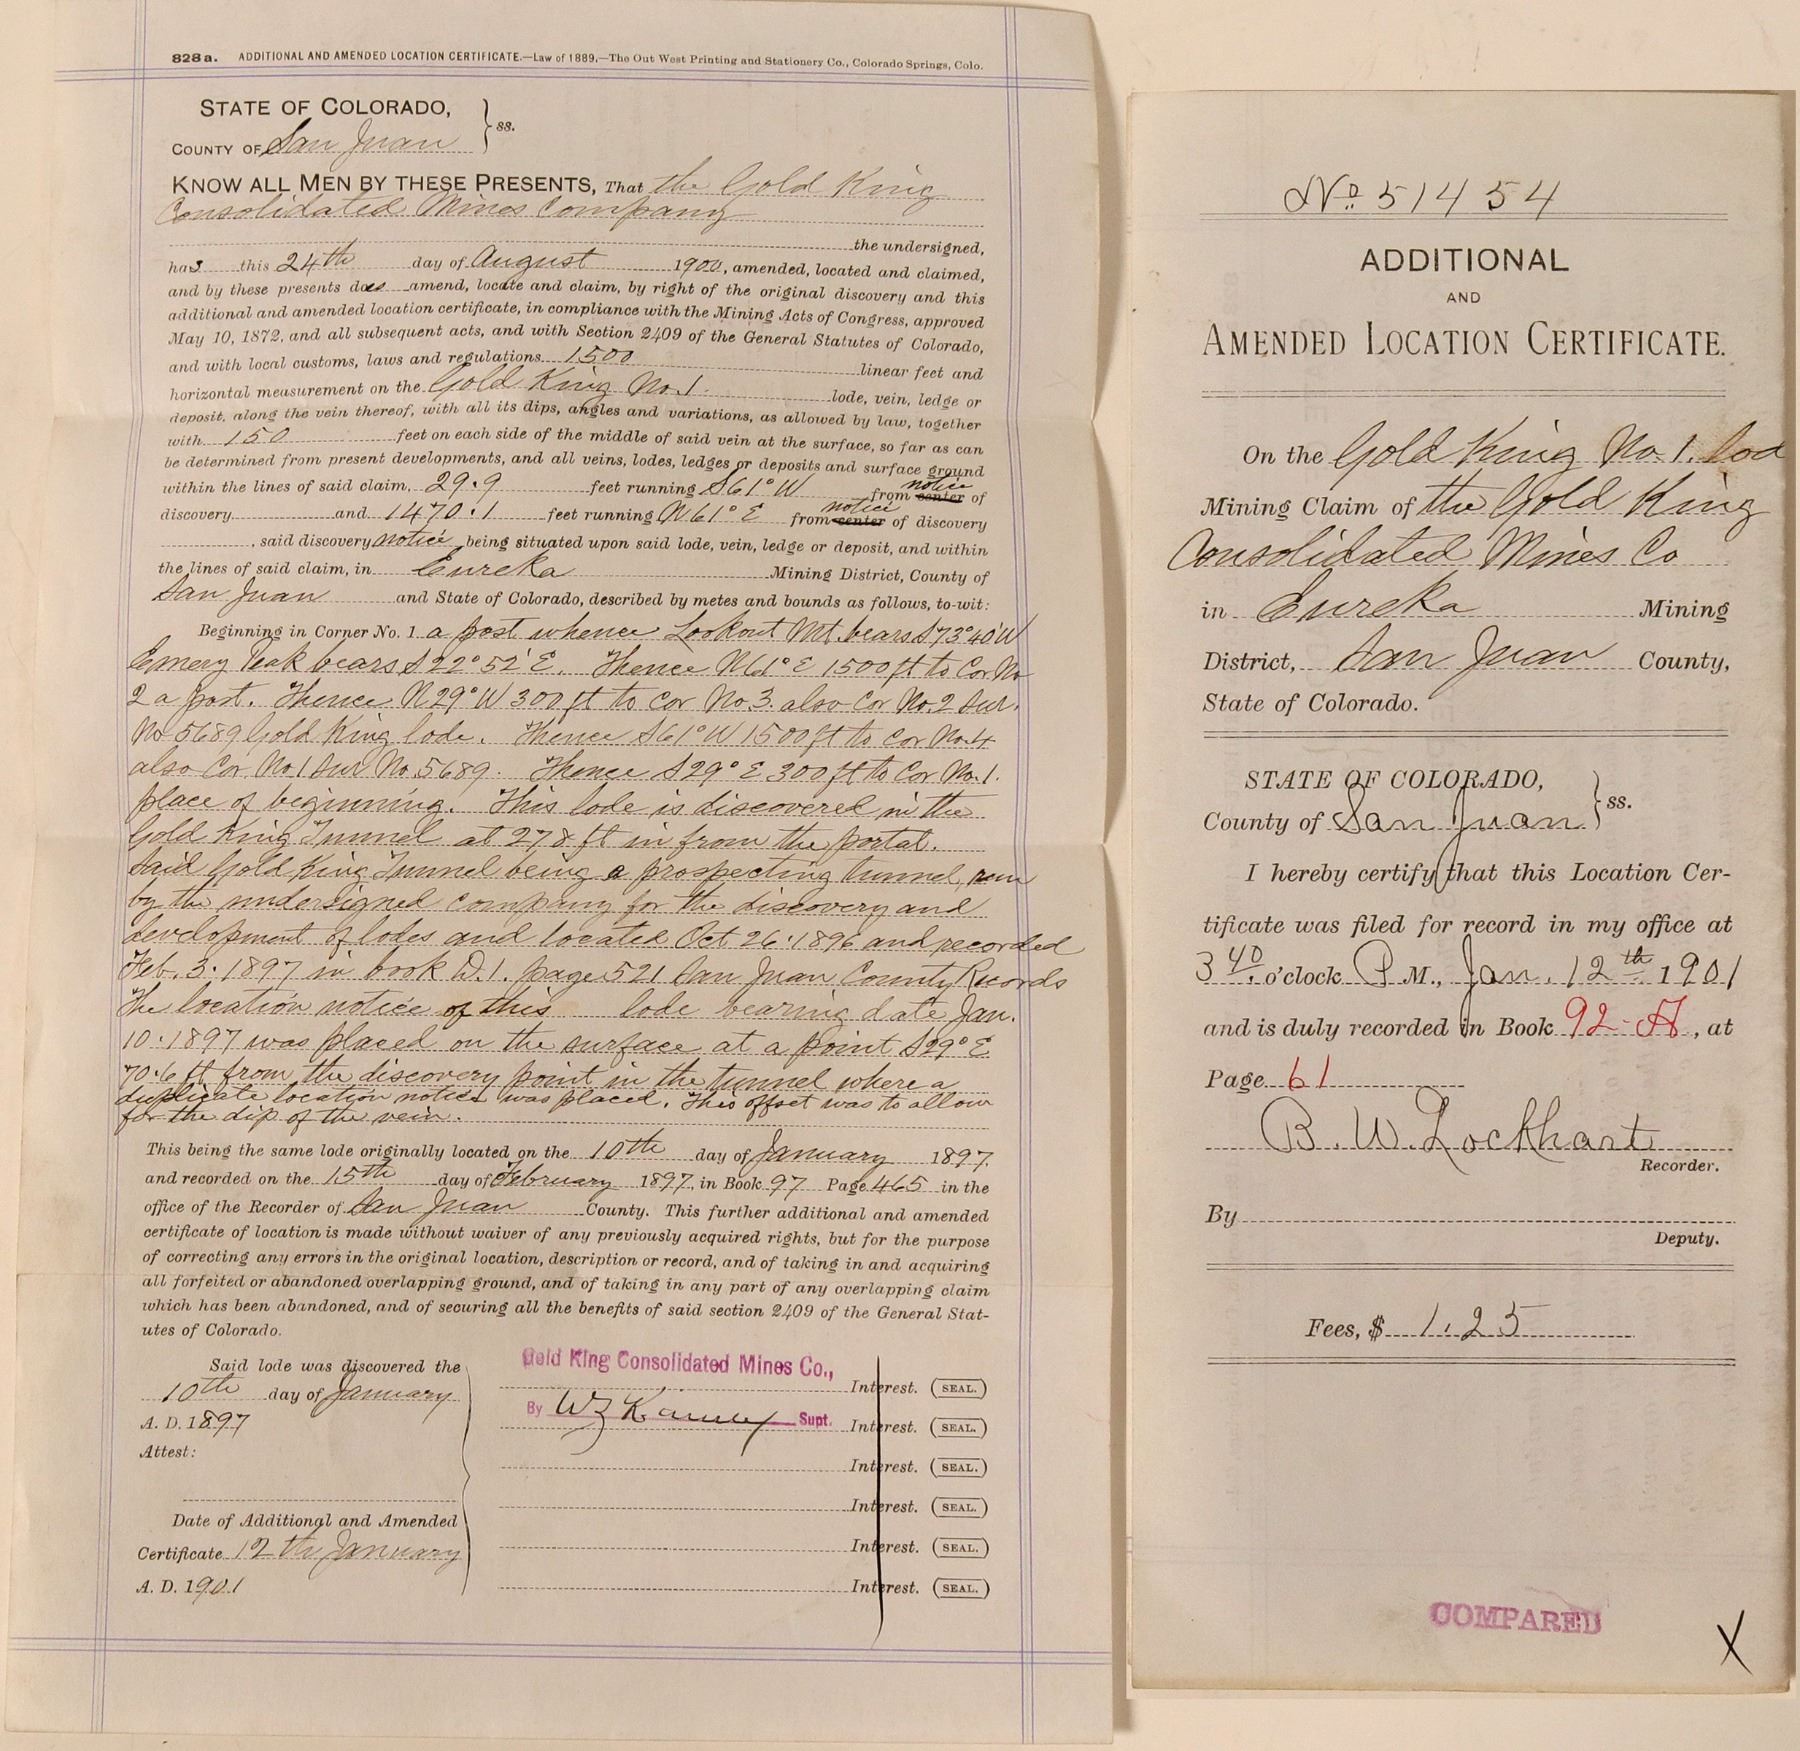 828a. ADDITIONAL AND AMENDED LOCATION CERTIFICATE.—Law of 1889.—The Out West Printing and Stationery Co., Colorado Springs, Colo.
STATE OF COLORADO,
COUNTY OF San Juan } ss.
KNOW ALL MEN BY THESE PRESENTS, That the Gold King
Consolidated Mines Company
the undersigned,
has this 24th day of August 1900, amended, located and claimed,
and by these presents does amend, locate and claim, by right of the original discovery and this
additional and amended location certificate, in compliance with the Mining Acts of Congress, approved
May 10, 1872, and all subsequent acts, and with Section 2409 of the General Statutes of Colorado,
and with local customs, laws and regulations 1500 linear feet and
horizontal measurement on the Gold King No. 1. lode, vein, ledge or
deposit, along the vein thereof, with all its dips, angles and variations, as allowed by law, together
with 150 feet on each side of the middle of said vein at the surface, so far as can
be determined from present developments, and all veins, lodes, ledges or deposits and surface ground
within the lines of said claim, 29.9 feet running S61°W from center notice of
discovery and 1470.1 feet running N61°E from center notice of discovery
, said discovery notice being situated upon said lode, vein, ledge or deposit, and within
the lines of said claim, in Eureka Mining District, County of
San Juan and State of Colorado, described by metes and bounds as follows, to-wit:
Beginning in Corner No. 1 a post whence Lookout Mt. bears S73°40'W
Emery Peak bears S22°52'E. Thence N61°E 1500ft to Cor. No
2 a post. Thence N29°W 300ft to Cor No. 3. also Cor No. 2 Sur.
No 5689 Gold King lode. Thence S61°W 1500ft to Cor No. 4
also Cor. No. 1 Sur No. 5689. Thence S29°E 300ft to Cor No. 1.
place of beginning. This lode is discovered in the
Gold King Tunnel at 278 ft in from the portal.
Said Gold King Tunnel being a prospecting tunnel, run
by the undersigned company for the discovery and
development of lodes and located Oct 26. 1896 and recorded
Feb. 3. 1897 in book D.1. page 521 San Juan County Records
The location notice of this lode bearing date Jan.
10. 1897 was placed on the surface at a point S29°E
70.6 ft from the discovery point in the tunnel where a
duplicate location notice was placed. This offset was to allow
for the dip of the vein.
This being the same lode originally located on the 10th day of January 1897,
and recorded on the 15th day of February 1897, in Book 97 Page 465 in the
office of the Recorder of San Juan County. This further additional and amended
certificate of location is made without waiver of any previously acquired rights, but for the purpose
of correcting any errors in the original location, description or record, and of taking in and acquiring
all forfeited or abandoned overlapping ground, and of taking in any part of any overlapping claim
which has been abandoned, and of securing all the benefits of said section 2409 of the General Stat-
utes of Colorado.
Said lode was discovered the
10th day of January
A. D. 1897
Attest:
Date of Additional and Amended
Certificate 12th January
A. D. 1901
Gold King Consolidated Mines Co.,
Interest. (SEAL.)
By W Z Kinney Supt. Interest. (SEAL.)
Interest. (SEAL.)
Interest. (SEAL.)
Interest. (SEAL.)
Interest. (SEAL.)
No. 51454
ADDITIONAL
AND
AMENDED LOCATION CERTIFICATE.
On the Gold King No. 1. lod
Mining Claim of the Gold King
Consolidated Mines Co
in Eureka Mining
District, San Juan County,
State of Colorado.
STATE OF COLORADO,
County of San Juan } ss.
I hereby certify that this Location Cer-
tificate was filed for record in my office at
3 40 o'clock P M., Jan. 12th 1901
and is duly recorded in Book 92-A, at
Page 61
B. W. Lockhart
Recorder.
By
Deputy.
Fees, $ 1.25
COMPARED
X